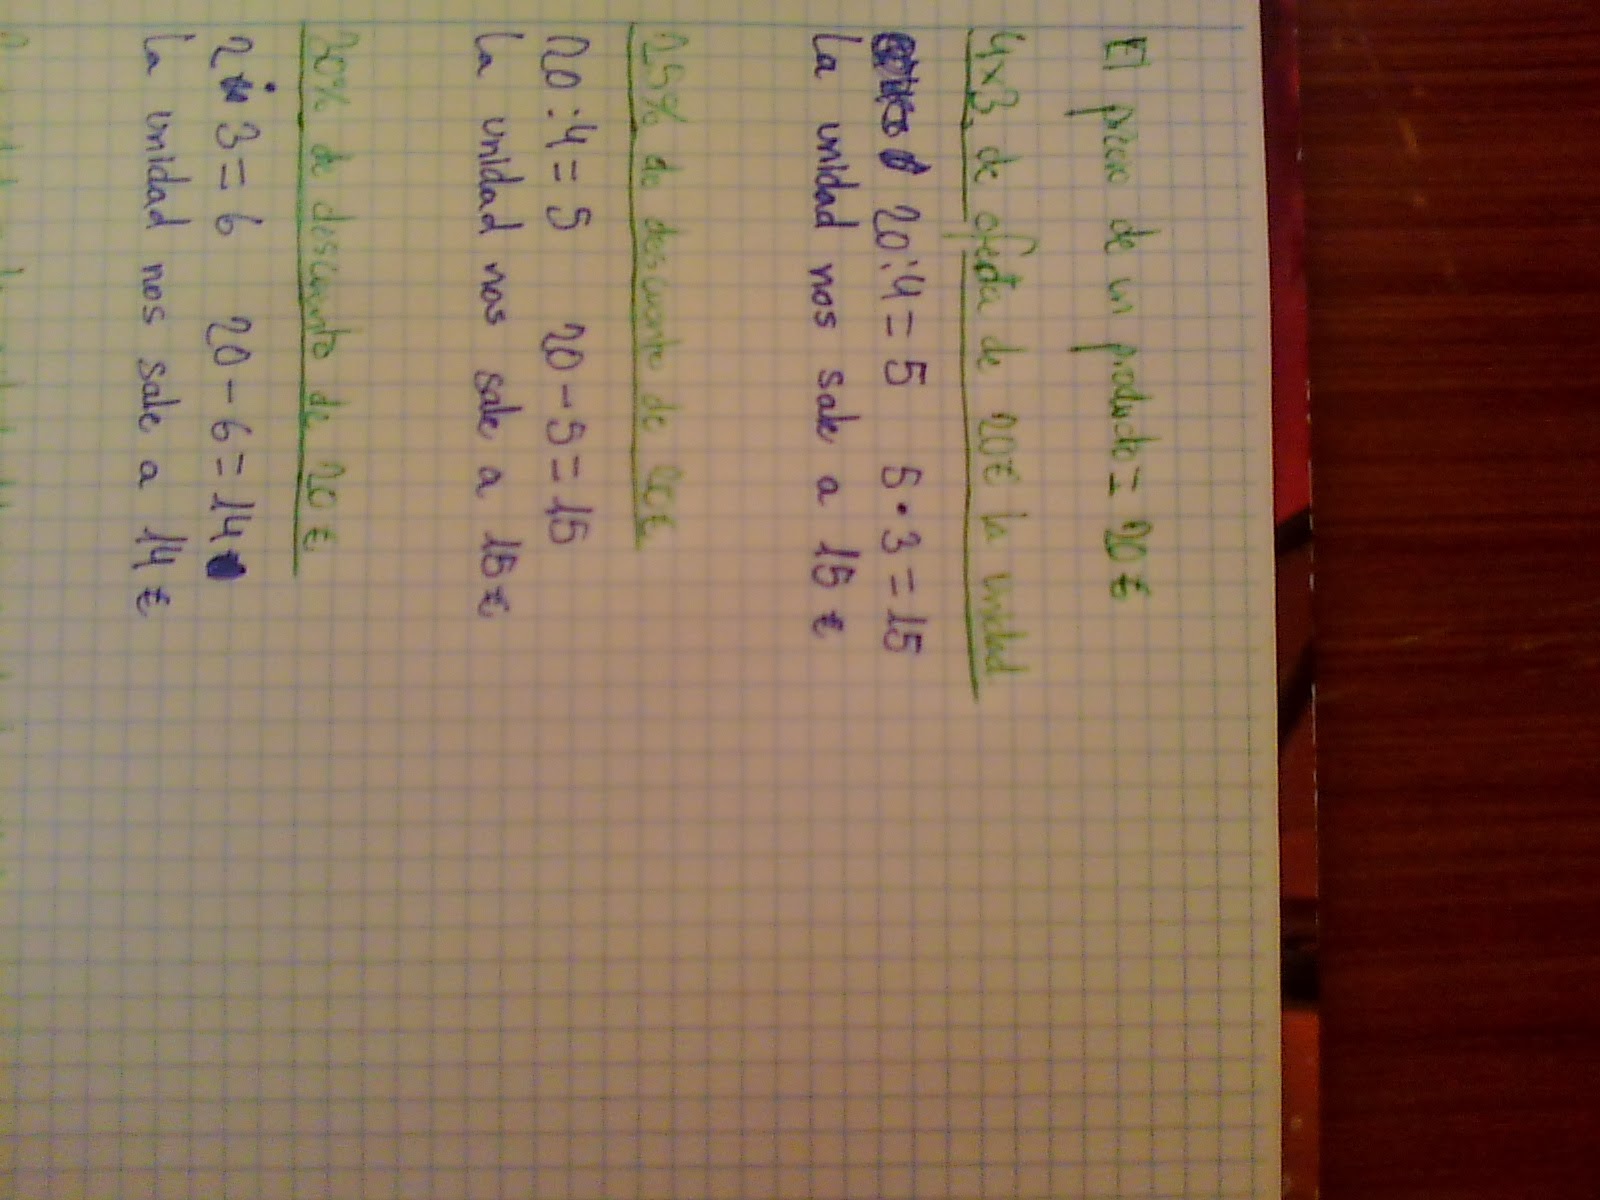 El precio de un producto = 20 €
4x3 de oferta de 20€ la unidad
20:4=5 5·3=15
La unidad nos sale a 15 €
25% de descuento de 20€
20:4=5 20-5=15
La unidad nos sale a 15€
30% de descuento de 20€
2·3=6 20-6=14
La unidad nos sale a 14€